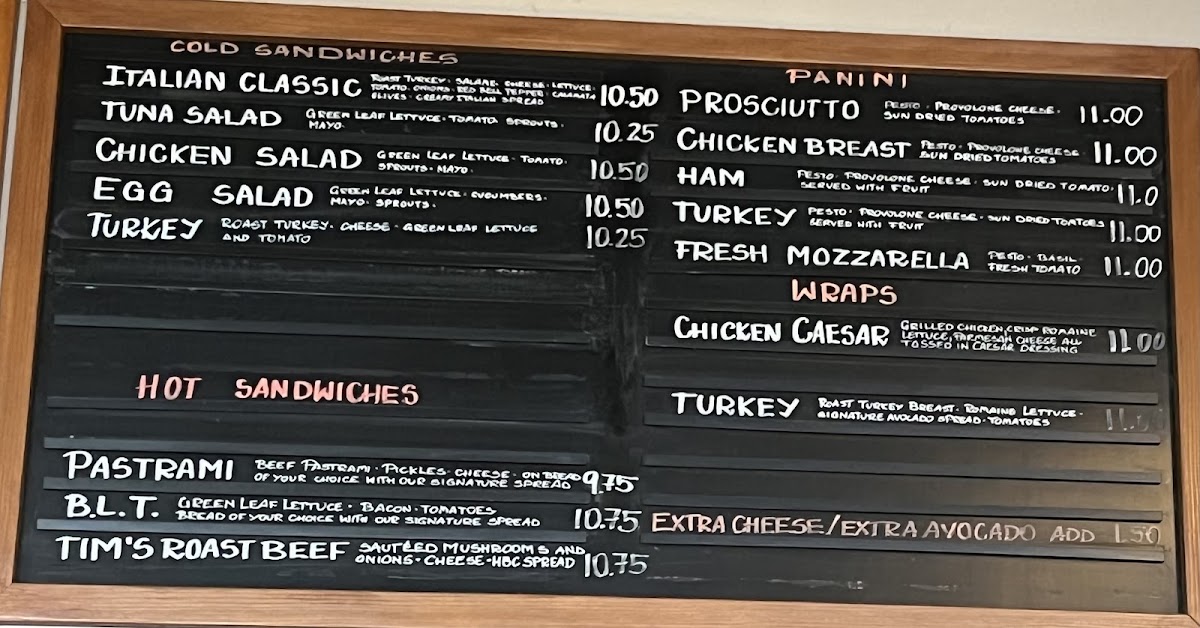 COLD SANDWICHES
ITALIAN CLASSIC ROAST TURKEY · SALAME · CHEESE · LETTUCE · 10.50
TOMATO · ONIONS · RED BELL PEPPER · CALAMATA
OLIVES · CREAMY ITALIAN SPREAD
TUNA SALAD GREEN LEAF LETTUCE · TOMATO SPROUTS · 10.25
MAYO ·
CHICKEN SALAD GREEN LEAF LETTUCE · TOMATO · 10.50
SPROUTS · MAYO ·
EGG SALAD GREEN LEAF LETTUCE · CUCUMBERS · 10.50
MAYO · SPROUTS ·
TURKEY ROAST TURKEY · CHEESE · GREEN LEAF LETTUCE 10.25
AND TOMATO
HOT SANDWICHES
PASTRAMI BEEF PASTRAMI · PICKLES · CHEESE · ON BREAD 9.75
OF YOUR CHOICE WITH OUR SIGNATURE SPREAD
B.L.T. GREEN LEAF LETTUCE · BACON · TOMATOES 10.75
BREAD OF YOUR CHOICE WITH OUR SIGNATURE SPREAD
TIM'S ROAST BEEF SAUTEED MUSHROOMS AND 10.75
ONIONS · CHEESE · HBC SPREAD
PANINI
PROSCIUTTO PESTO · PROVOLONE CHEESE · 11.00
SUN DRIED TOMATOES
CHICKEN BREAST PESTO · PROVOLONE CHEESE 11.00
SUN DRIED TOMATOES
HAM PESTO · PROVOLONE CHEESE · SUN DRIED TOMATO · 11.0
SERVED WITH FRUIT
TURKEY PESTO · PROVOLONE CHEESE · SUN DRIED TOATOES 11.00
SERVED WITH FRUIT
FRESH MOZZARELLA PESTO · BASIL · 11.00
FRESH TOMATO
WRAPS
CHICKEN CAESAR GRILLED CHICKEN, CRISP ROMAINE 11.00
LETTUCE, PARMESAN CHEESE ALL
TOSSED IN CAESAR DRESSING
TURKEY ROAST TURKEY BREAST · ROMAINE LETTUCE ·
SIGNATURE AVOCADO SPREAD · TOMATOES
EXTRA CHEESE/EXTRA AVOCADO ADD 1.50